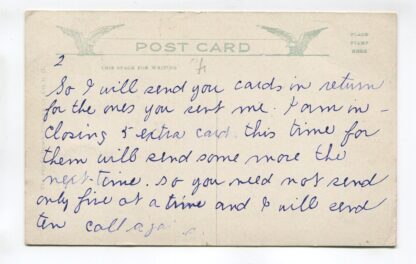 2
POST CARD
PLACE
STAMP
HERE
THIS SPACE FOR WRITING
So I will send you cards in return
for the ones you sent me. I am in-
closing 5 extra card this time for
them will send some more the
next time. so you need not send
only five at a time and I will send
ten call again